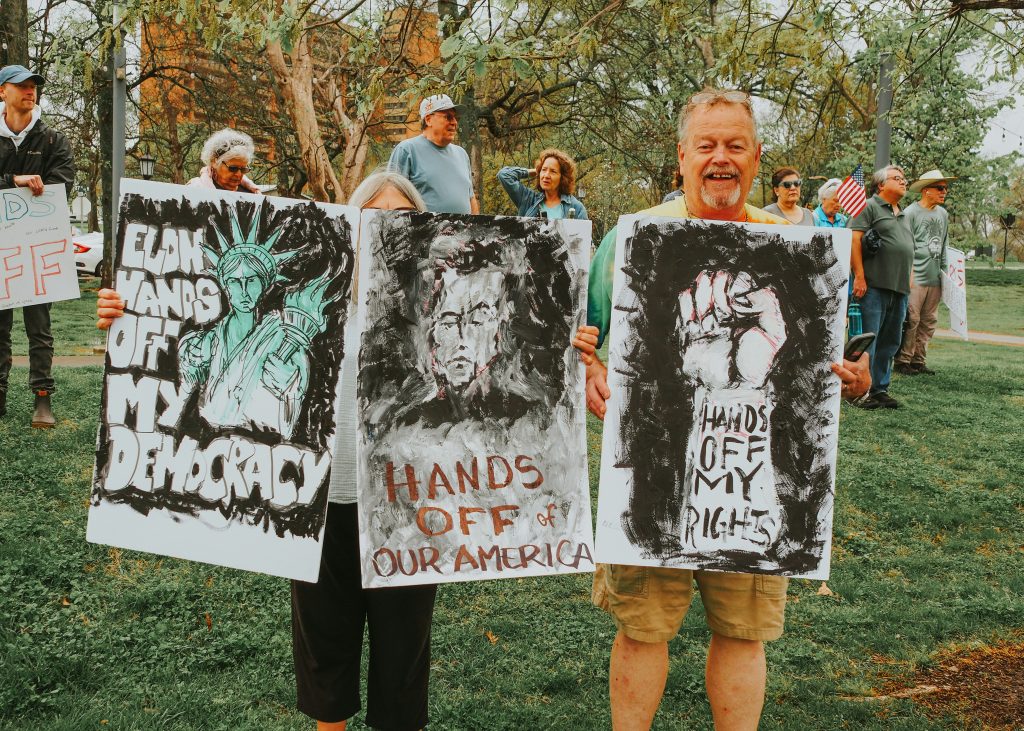 DS
FF
ELON
HANDS
OFF
MY
DEMOCRACY
HANDS
OFF of
OUR AMERICA
HANDS
OFF
MY
RIGHTS